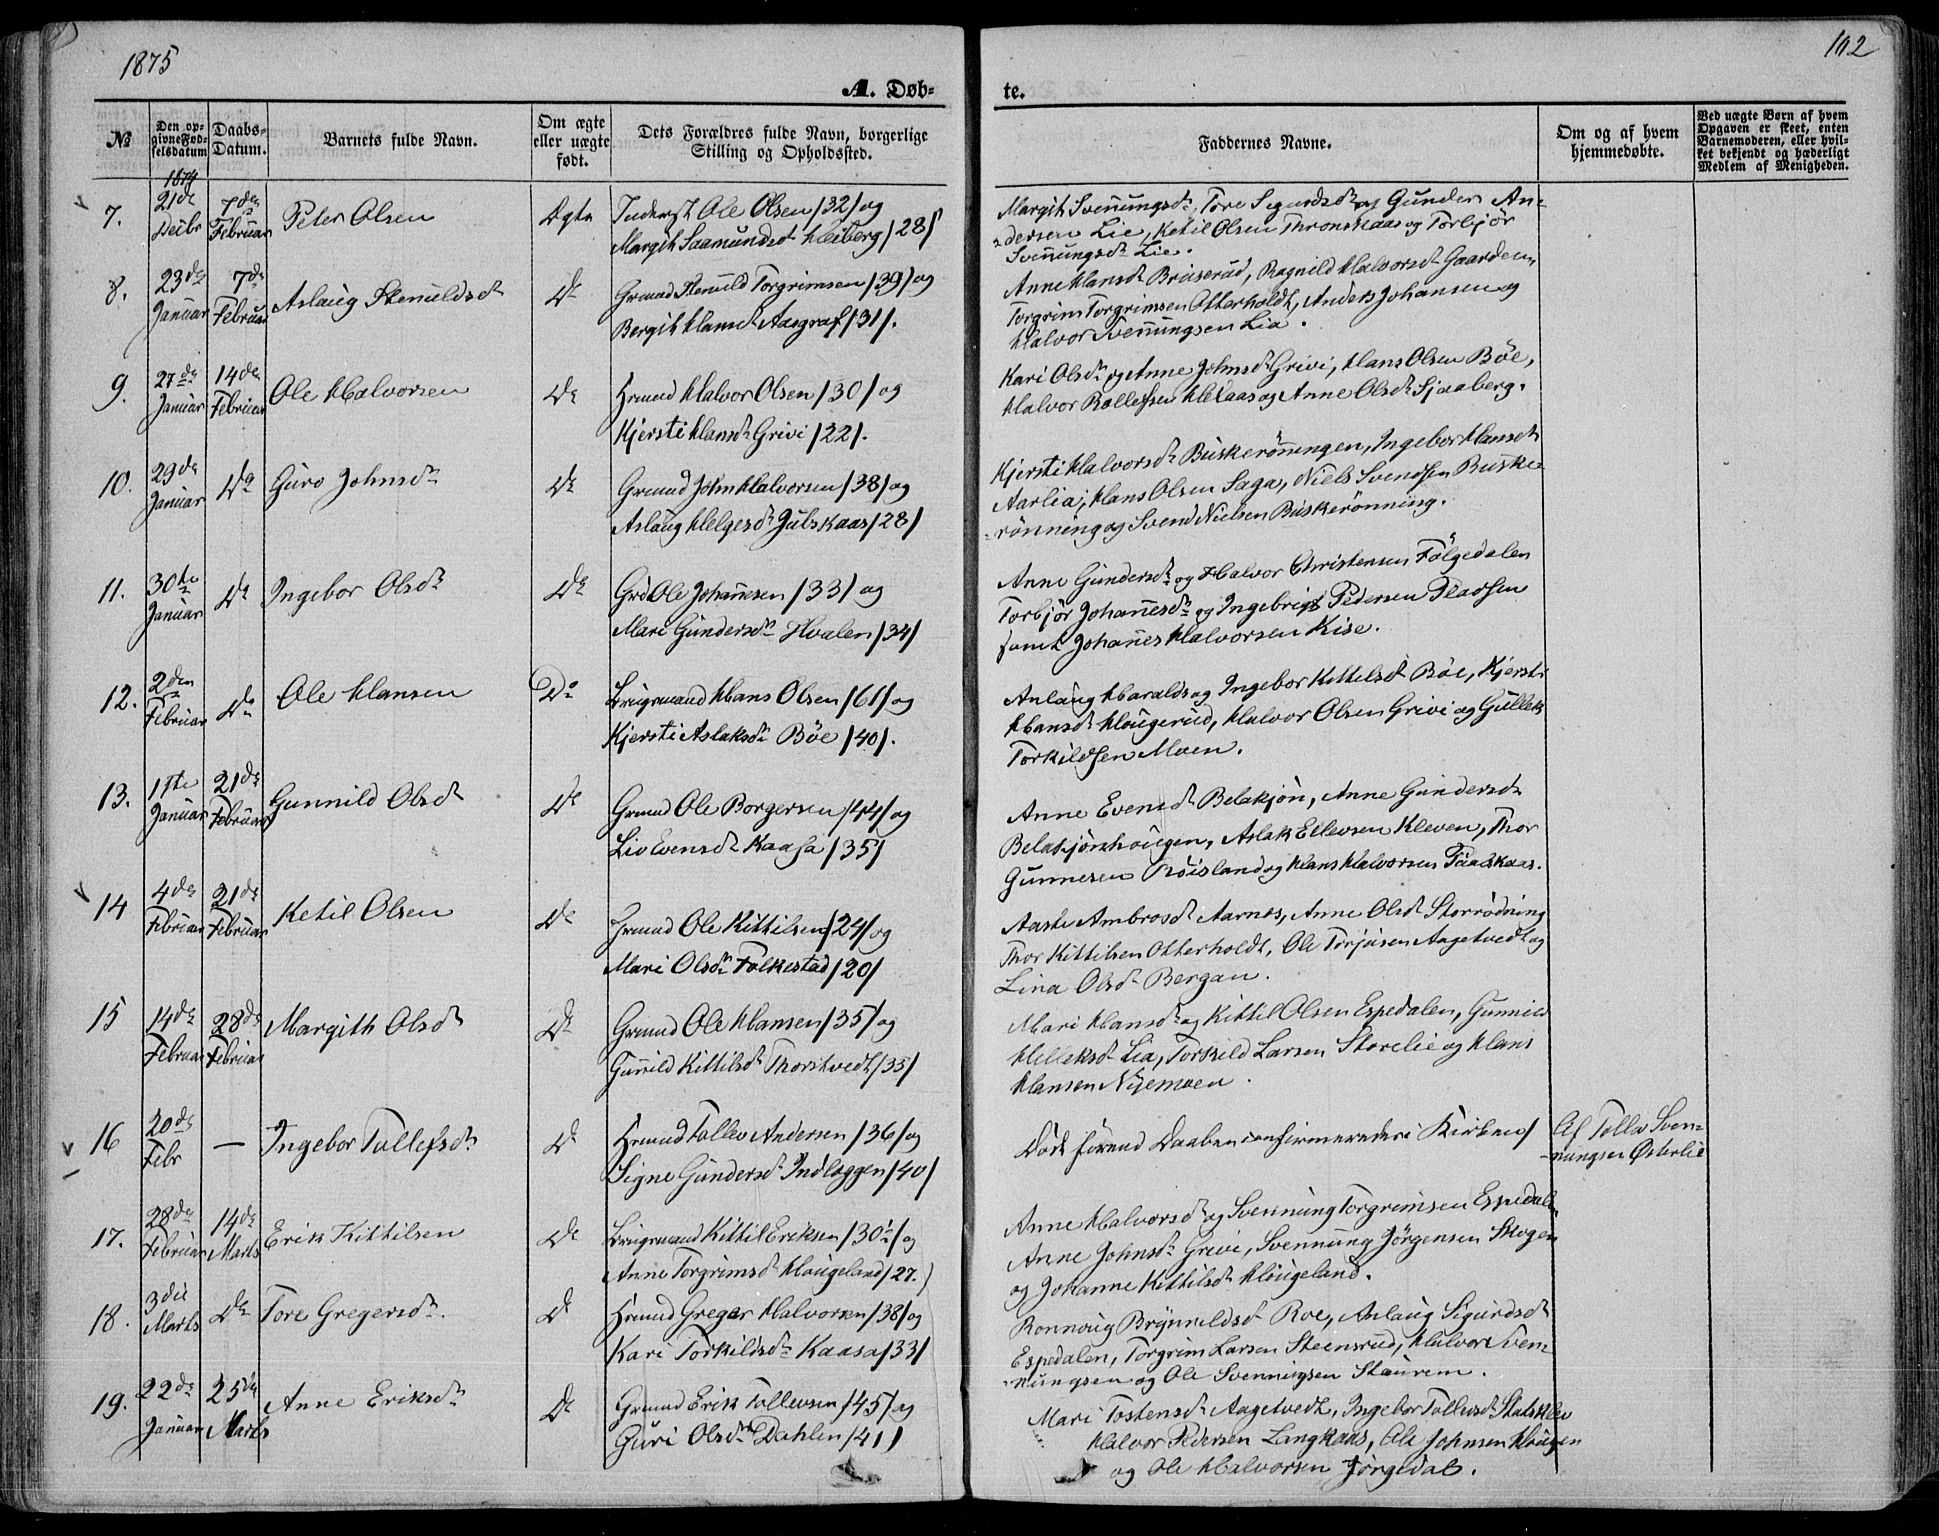 1875
102
A. Døb-
te.
№
Den op-
givne Fød-
selsdatum
Daabs-
Datum.
Barnets fulde Navn.
Om ægte
eller uægte
født.
Dets Forældres fulde Navn, borgerlige
Stilling og Opholdssted.
Faddernes Navne.
Om og af hvem
hjemmedøbte.
Ved uægte Børn af hvem
Opgaven er skeet, enten
Barnemoderen, eller hvil-
ket bekjendt og hæderligt
Medlem af Menigheden.
1874
7. 21de Decbr 7de Februar Peter Olsen Ægte Inderst Ole Olsen /32/ og
Margit Saamundsdr Heiberg /28/
Margit Svennungsdr, Tore Sigurdsdr og Gunder An-
dersen Lie, Ketil Olsen Thronskaas og Torbjør
Svennungsdr Lie.
8. 23de Januar 7de Februar Aslaug Stenuldsdr Do Grmnd Stenuld Torgrimsen /39/ og
Bergit Hansdr Aasgraf /31/.
Anne Hansdr Bruserud, Ragnild Halvorsdr Gaarden,
Torgrim Torgrimsen Otterholdt, Anders Johansen og
Halvor Svennungsen Lia.
9. 27de Januar 14de Februar Ole Halvorsen Do Hrmnd Halvor Olsen /30/ og
Kjersti Hansdr Grivi /22/.
Kari Olsdr og Anne Johnsdr Grivi, Hans Olsen Bøe,
Halvor Rollefsen Helaas og Anne Olsdr Sjaaberg.
10. 29de Januar Do Guro Johnsdr Do Grmnd John Halvorsen /38/ og
Aslaug Helgesdr Julskaas /28/
Kjersti Halvorsdr Buskerønningen, Ingebor Hansdr
Aarlia, Hans Olsen Saga, Niels Svendsen Buske-
rønning og Svend Nielsen Buskerønning.
11. 30te Januar Do Ingebor Olsdr Do Grd Ole Johannesen /33/ og
Mari Gundersdr Hvalen /34/
Anne Gundersdr og Halvor Christensen Følgedalen
Torbjør Johannesdr og Ingebrigt Pedersen
samt Johannes Halvorsen Kise.
12. 2den Februar Do Ole Hansen Do Brugmand Hans Olsen /61/ og
Kjersti Aslaksdr Bøe /40/.
Anlaug Haralds og Ingebor Kittelsdr Bøe, Kjersti
Hansdr Haugerud, Halvor Olsen Grivi og Gullek
Torkildsen Moen.
13. 1ste Januar 21de Februar Gunnild Olsdr Do Grmnd Ole Borgersen /44/ og
Liv Evensdr Kaasa /35/
Anne Evensdr Belakjøn, Anne Gundersdr
Belakjønhougen, Aslak Ellevsen Kleven, Thor
Gunnesen Røisland og Hans Halvorsen Taalskaas.
14 4de Februar 21de Februar Ketil Olsen Do Hrmnd Ole Kittilsen /24/ og
Mari Olsdr Folkestad /20/
Aaste Ambrosdr Aarnes, Anne Olsdr Storrødning
Thor Kittilsen Otterholdt, Ole Torjusen Aagetvedt og
Lina Olsdr Bergan.
15 14de Februar 28de Februar Margith Olsdr Do Grmnd Ole Hansen /35/ og
Gunild Kittilsdr Thorstvedt /35/
Mari Hansdr og Kittil Olsen Espedalen, Gunnild
Helleksdr Lia, Torkild Larsen Storelie og Hans
Hansen Nyemoen.
16 20de Febr — Ingebor Tollefsdr Do Hrmnd Tollev Andersen /36/ og
Signe Gundersdr Indlæggen /40/
Død forend Daaben confirmerede i Kirken/
Af Tollev Sven-
nungsen Østerlie
17. 28de Februar 14de Marts Erik Kittilsen Do Brugmand Kittil Eriksen /30/ og
Anne Torgrimsdr Hougeland /27./
Anne Halvorsdr og Svennung Torgrimsen Espedalen
Anne Johnsdr Grivi, Svennung Jørgensen Skogen
og Johanne Kittilsdr Hougeland.
18. 3die Marts Do Tore Gregersdr. Do Hrmnd Greger Halvorsen /38/ og
Kari Torkildsdr Kaasa /33/
Ronnoug Brynnildsdr Roe, Anlaug Sigurdsdr
Espedalen, Torgrim Larsen Steensrud, Halvor Sven-
nungsen og Ole Svennungsen Staurem.
19. 22de Januar 25de Marts Anne Eriksdr Do Grmnd Erik Tollevsen /45/ og
Guri Olsdr Dahlen /41/
Mari Tostensdr Aagetvedt, Ingebor Tollevsdr Statskleiv
Halvor Pedersen Langkaas, Ole Johnsen Hougen
og Ole Halvorsen Jørgedal.